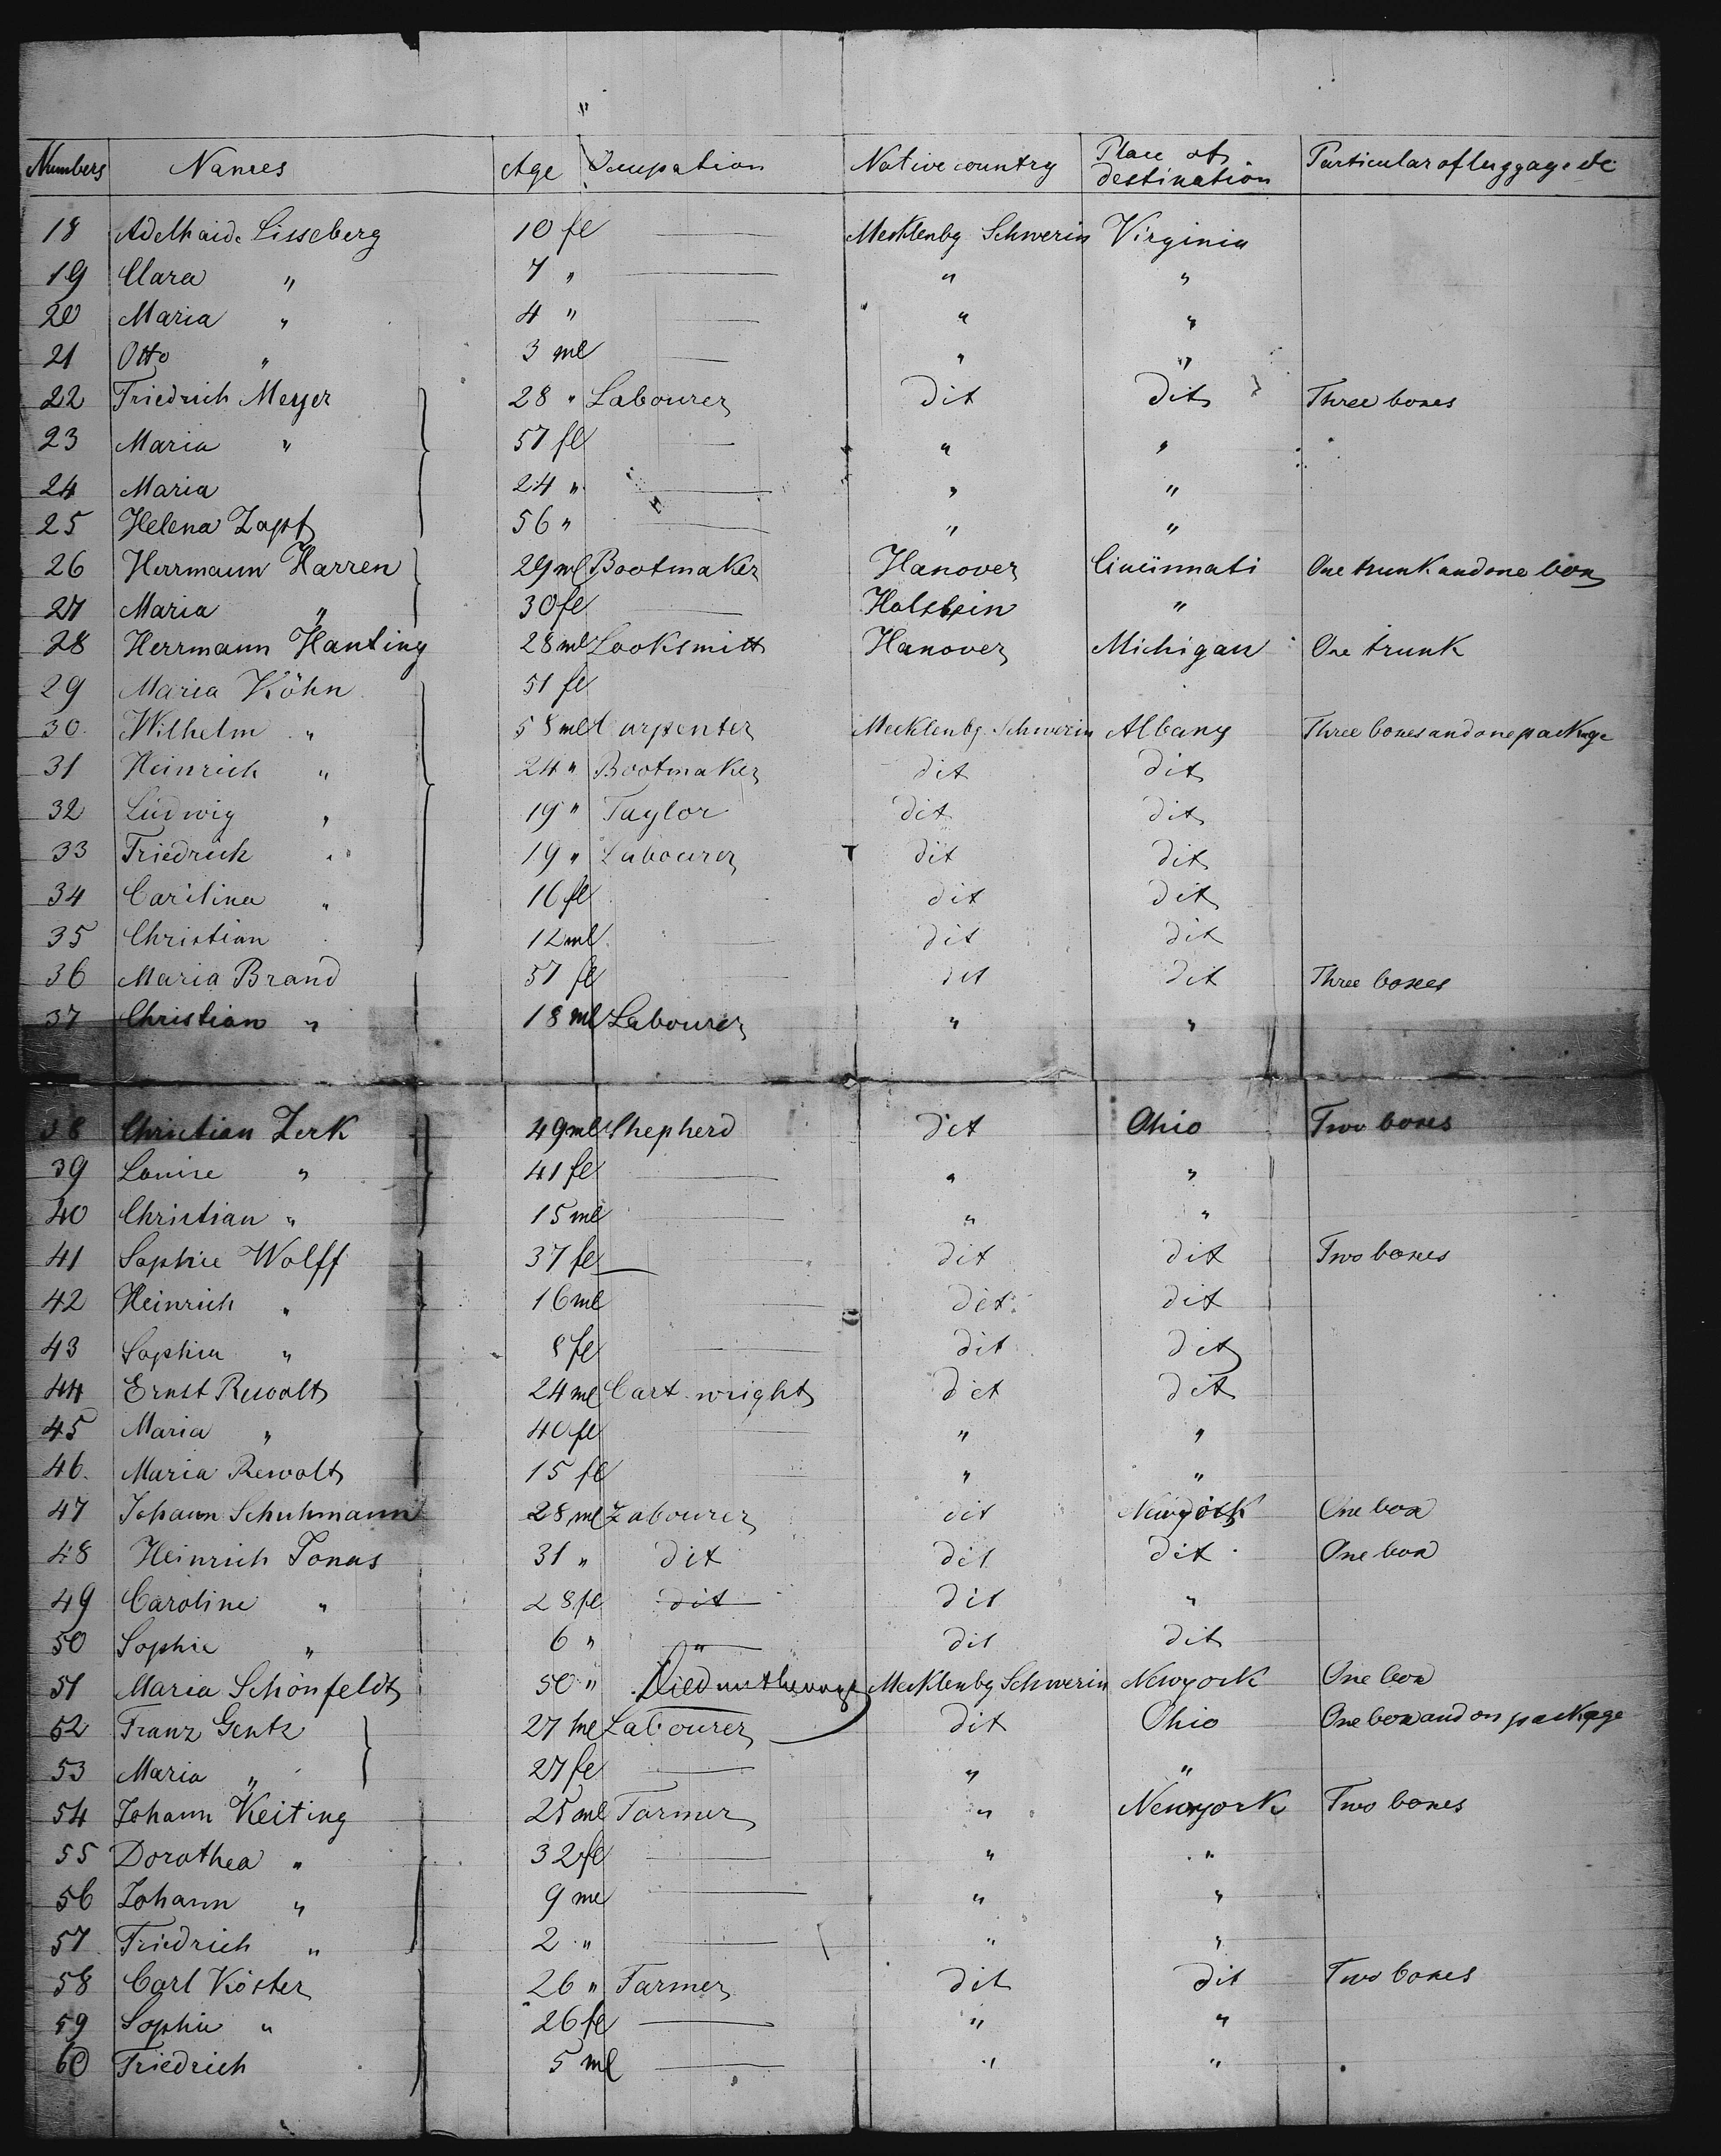 Numbers Names Age Ocupation Native country Place of destination Particular of luggage etc
18 Adelhaide Lisseberg 10 fe — Mecklenbg Schwerin Virginia
19 Clara " 7 " — " "
20 Maria " 4 " — " "
21 Otto " 3 ml — " "
22 Friedrich Meyer 28 " Labourer dit dit Three boxes
23 Maria " 57 fe — " "
24 Maria 24 " — " "
25 Helena Zapf 56 " — " "
26 Herrmann Harren 29 ml Bootmaker Hanover Cincinnati One trunk and one box
27 Maria " 30 fe — Holstein "
28 Herrmann Hanting 28 ml Looksmitt Hanover Michigan One trunk
29 Maria Köhn 51 fe
30. Wilhelm " 58 ml Carpenter Mecklenbg. Schwerin Albany Three boxes and one package
31 Heinrich " 24 " Bootmaker dit dit
32 Ludwig " 19 " Taylor dit dit
33 Friedrich " 19 " Labourer dit dit
34 Carilina " 16 fe dit dit
35 Christian 12 ml — dit dit
36 Maria Brand 57 fe — dit dit Three boxes
37 Christian " 18 ml Labourer " "
38 Christian Zerk 49 ml Shepherd dit Ohio Two boxes
39 Louise " 41 fe — " "
40 Christian " 15 ml — " "
41 Sophie Wolff 37 fe — dit dit Two boxes
42 Heinrich " 16 ml — dit dit
43 Sophia " 8 fe — dit dit
44 Ernst Rewolt 24 ml Cart wright dit dit
45 Maria " 40 fe — " "
46. Maria Rewolt 15 fe — " "
47 Johann Schuhmann 28 ml Labourer dit Newyork One box
48 Heinrich Jonas 31 " dit dit dit One box
49 Caroline " 28 fe dit dit "
50 Sophie " 6 " " dit dit
51 Maria Schönfeldt 50 " Died on the voyage Mecklenbg Schwerin Newyork One box
52 Franz Gentz 27 ml Labourer dit Ohio One box and on package
53 Maria " 27 fe — " "
54 Johann Keiting 25 ml Farmer " Newyork Two boxes
55 Dorothea " 32 fe — " "
56 Johann " 9 ml — " "
57 Friedrich " 2 " — " "
58 Carl Köster 26 " Farmer dit dit Two boxes
59 Sophie " 26 fe — " "
60 Friedrich 5 ml — " "